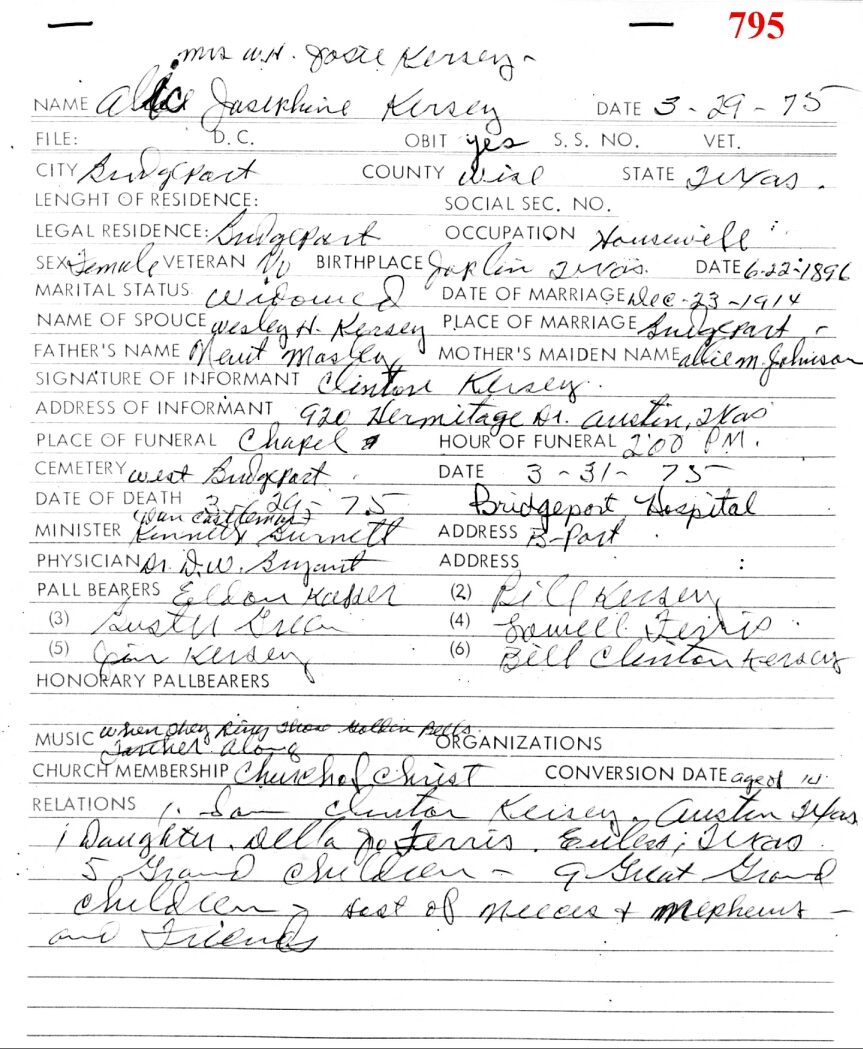 795
Mrs W.H. Josie Kersey
NAME Alice Josephine Kersey DATE 3-29-75
FILE: D.C. OBIT yes S. S. NO. VET.
CITY Bridgeport COUNTY Wise STATE Texas.
LENGHT OF RESIDENCE: SOCIAL SEC. NO.
LEGAL RESIDENCE: Bridgeport OCCUPATION
SEX Female VETERAN No BIRTHPLACE Joplin Texas. DATE 6-22-1896
MARITAL STATUS Widowed DATE OF MARRIAGE Dec-23-1914
NAME OF SPOUSE Wesley H. Kersey PLACE OF MARRIAGE Bridgeport
FATHER'S NAME MOTHER'S MAIDEN NAME Allie M. Johnson
SIGNATURE OF INFORMANT Clinton Kersey.
ADDRESS OF INFORMANT 920 Hermitage Dr. Austin, Texas
PLACE OF FUNERAL Chapel HOUR OF FUNERAL 2:00 P.M.
CEMETERY West Bridgeport DATE 3-31-75
DATE OF DEATH 3-29-75 Bridgeport Hospital
Dan Castleman
MINISTER Kenneth Burnett ADDRESS B-Port
PHYSICIAN Dr. D.W. Bryant ADDRESS :
PALL BEARERS Eldon (2) Bill Kersey
(3) Buster Green (4) Lowell Ferris.
(5) Jim Kersey (6) Bill Clinton Kersey
HONORARY PALLBEARERS
When They Ring Those Golden Bells
MUSIC Farther Along ORGANIZATIONS
CHURCH MEMBERSHIP Church of Christ CONVERSION DATE age of 14
RELATIONS 1. Son Clinton Kersey. Austin Texas
1 Daughter. Della Jo Ferris. Euless, Texas
5 Grand Children - 9 Great Grand
Children - Host of Nieces + Nephews -
and Friends